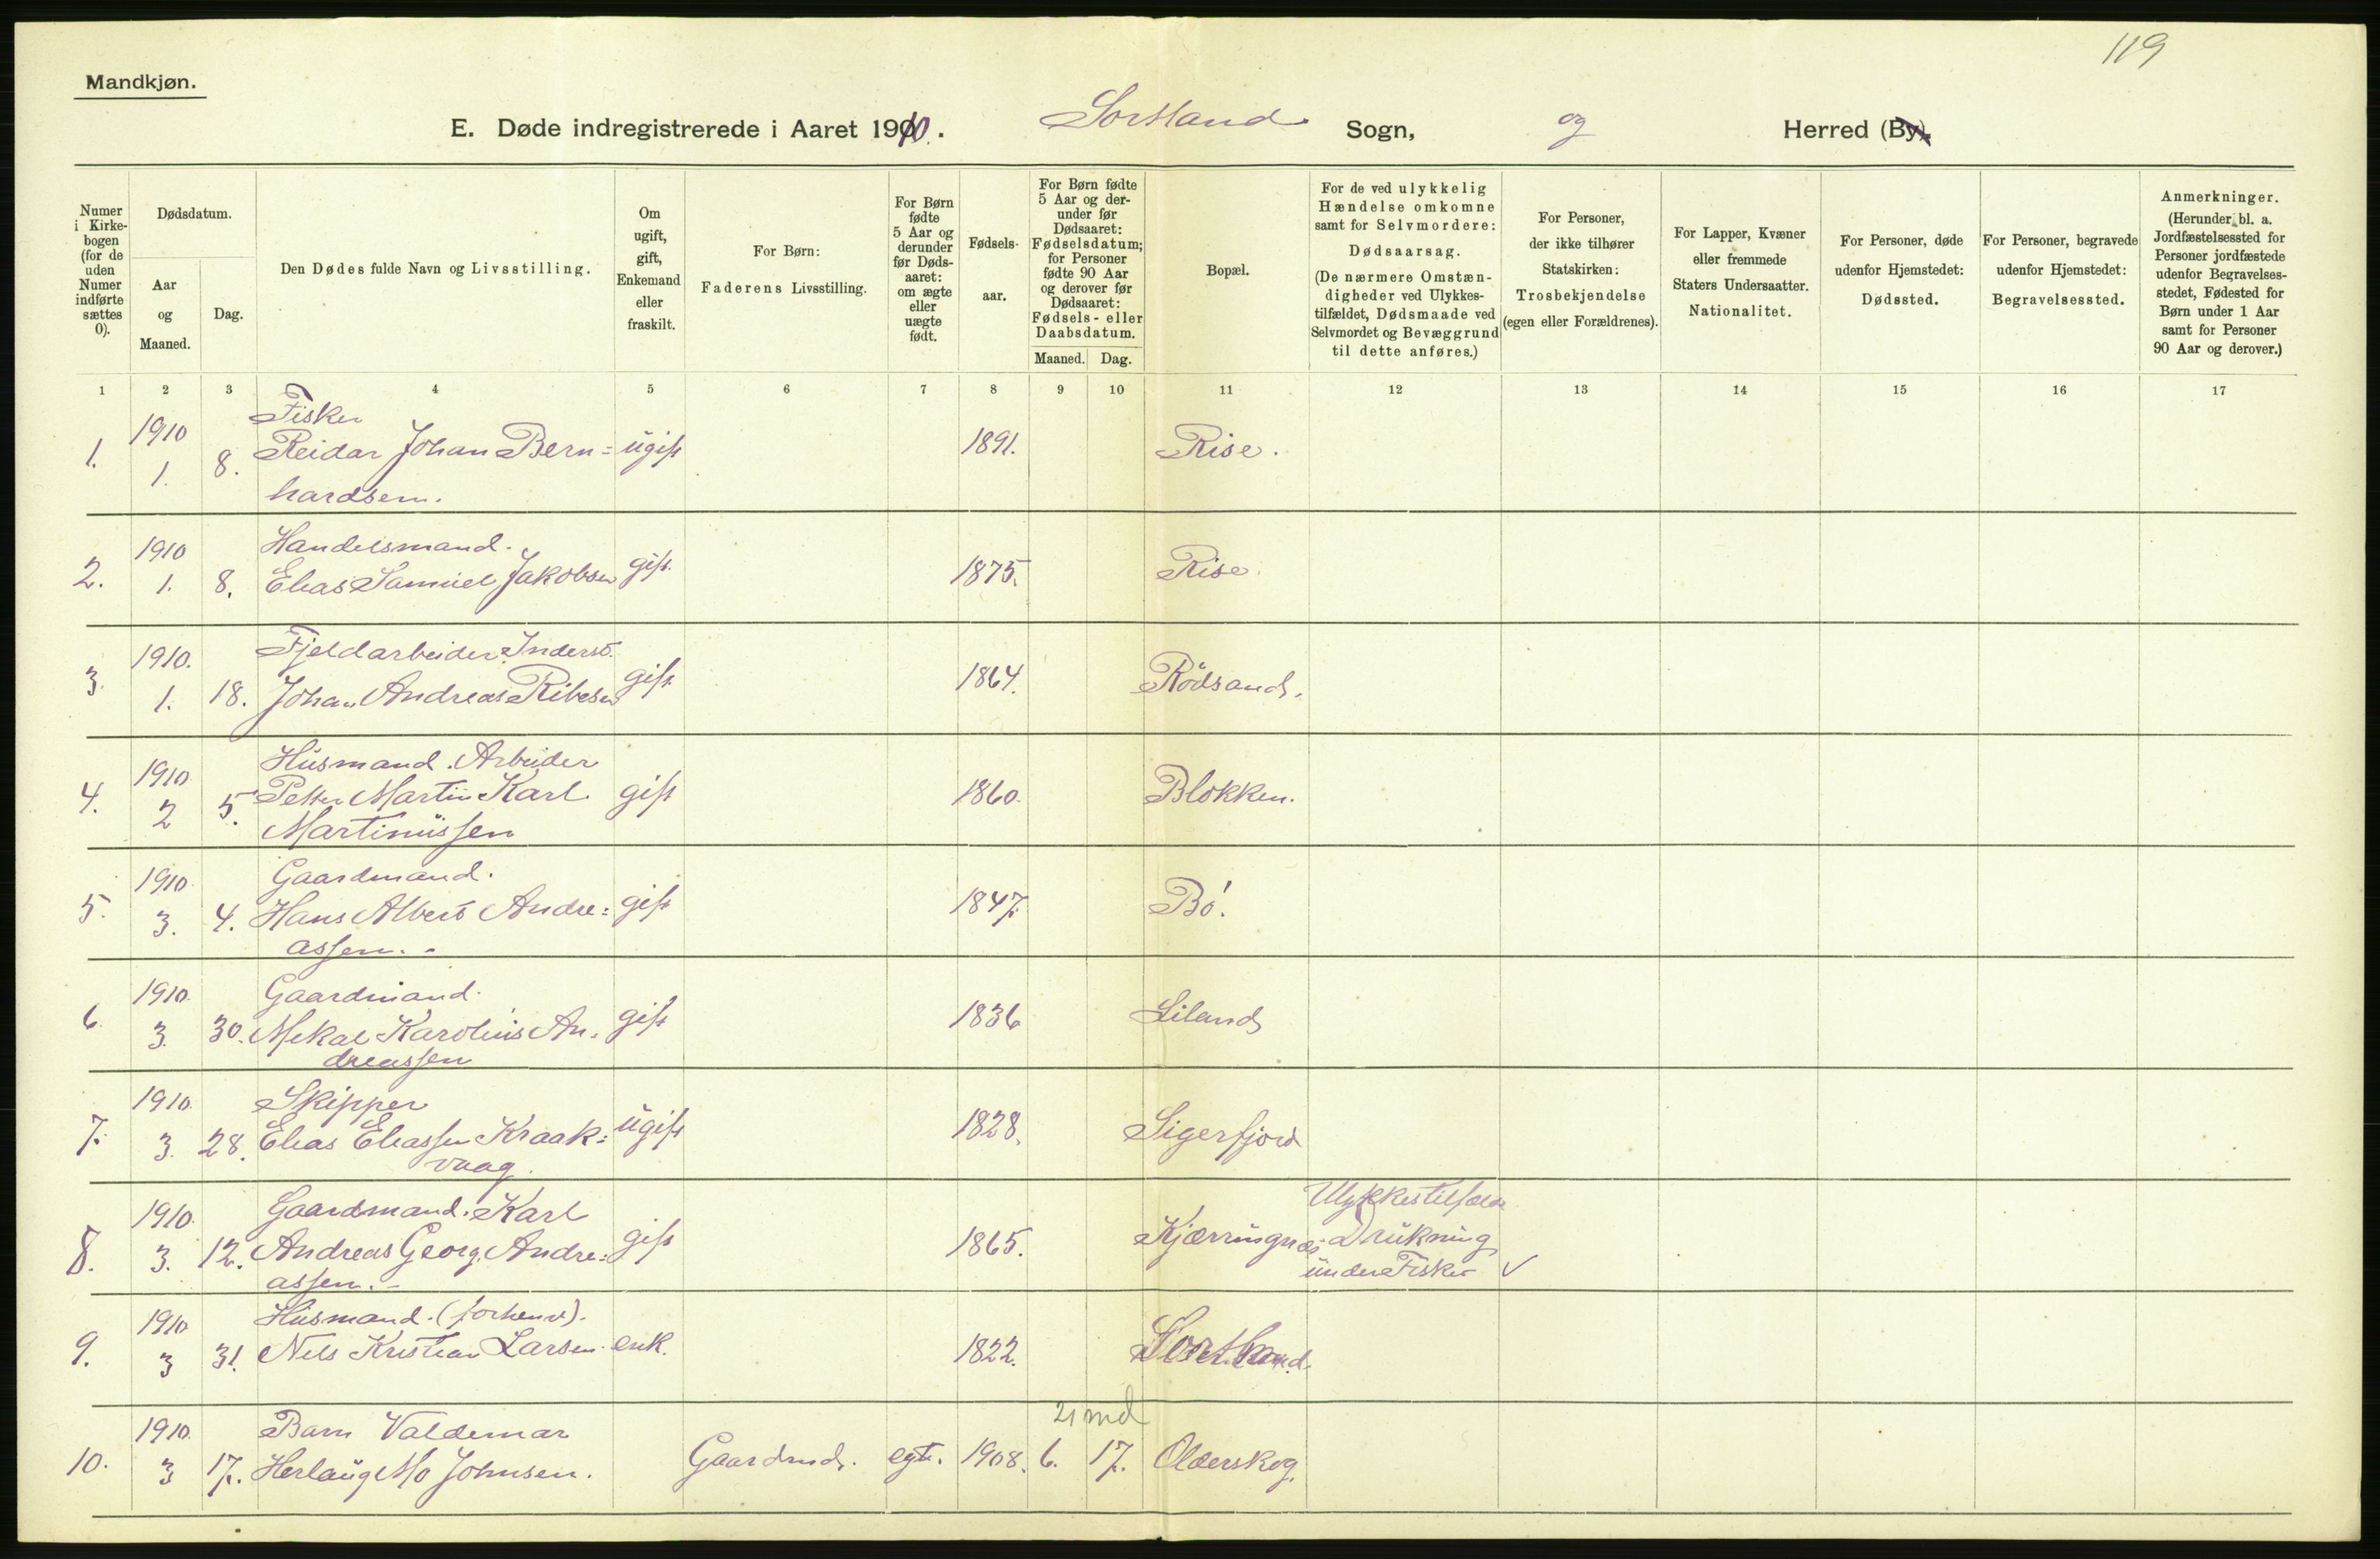 119
Mandkjøn.
E. Døde indregistrerede i Aaret 1910. Sortland Sogn, og Herred (By).
Numer i Kirkebogen (for de uden Numer indførte sættes 0).
Dødsdatum.
Aar og Maaned.
Dag.
Den Dødes fulde Navn og Livsstilling.
Om ugift, gift, Enkemand eller fraskilt.
For Børn:
Faderens Livsstilling.
For Børn fødte 5 Aar og derunder før Dødsaaret: om ægte eller uægte født.
Fødselsaar.
For Børn fødte 5 Aar og derunder før Dødsaaret: Fødselsdatum; for Personer fødte 90 Aar og derover før Dødsaaret: Fødsels- eller Daabsdatum.
Maaned. Dag.
Bopæl.
For de ved ulykkelig Hændelse omkomne samt for Selvmordere:
Dødsaarsag.
(De nærmere Omstændigheder ved Ulykkestilfældet, Dødsmaade ved Selvmordet og Bevæggrund til dette anføres.)
For Personer, der ikke tilhører Statskirken:
Trosbekjendelse
(egen eller Forældrenes).
For Lapper, Kvæner eller fremmede Staters Undersaatter.
Nationalitet.
For Personer, døde udenfor Hjemstedet:
Dødssted.
For Personer, begravede udenfor Hjemstedet:
Begravelsessted.
Anmerkninger.
(Herunder bl. a. Jordfæstelsessted for Personer jordfæstede udenfor Begravelsesstedet, Fødested for Børn under 1 Aar samt for Personer 90 Aar og derover.)
1 2 3 4 5 6 7 8 9 10 11 12 13 14 15 16 17
1910 Fisker
1. 1. 8. Reidar Johan Bern= ugift 1891. Rise.
hardsen.
1910 Handelsmand.
2. 1. 8. Elias Samuel Jakobsen gift 1875. Rise.
1910. Fjeldarbeider. Inderst.
3. 1. 18. Johan Andreas Ribesen gift 1864. Rödsand.
1910 Husmand. Arbeider
4. 2 5. Petter Martin Karl gift 1860. Blokken.
Martinussen
1910. Gaardmand.
5. 3. 4. Hans Albert Andre= gift 1847. Bö.
assen.
1910. Gaardmand.
6 3. 30. Mekal Karolius An= gift 1836 Liland
dreassen
1910. Skipper
7. 3. 28. Elias Eliassen Kraak= ugift 1828. Sigerfjord
vaag.
1910. Gaardmand. Karl Ulykkestilfælde
8. 3. 12. Andreas Georg Andre= gift 1865. Kjærringnæs Drukning
assen. under Fiske ✓
1910 Husmand. (forhenv).
9. 3 31. Nils Kristian Larsen. enk. 1822. Sortland.
21 md
1910. Barn Valdemar
10. 3 17. Herlaug Mo Johnsen. Gaardmd. egte. 1908. 6. 17. Olderskog.